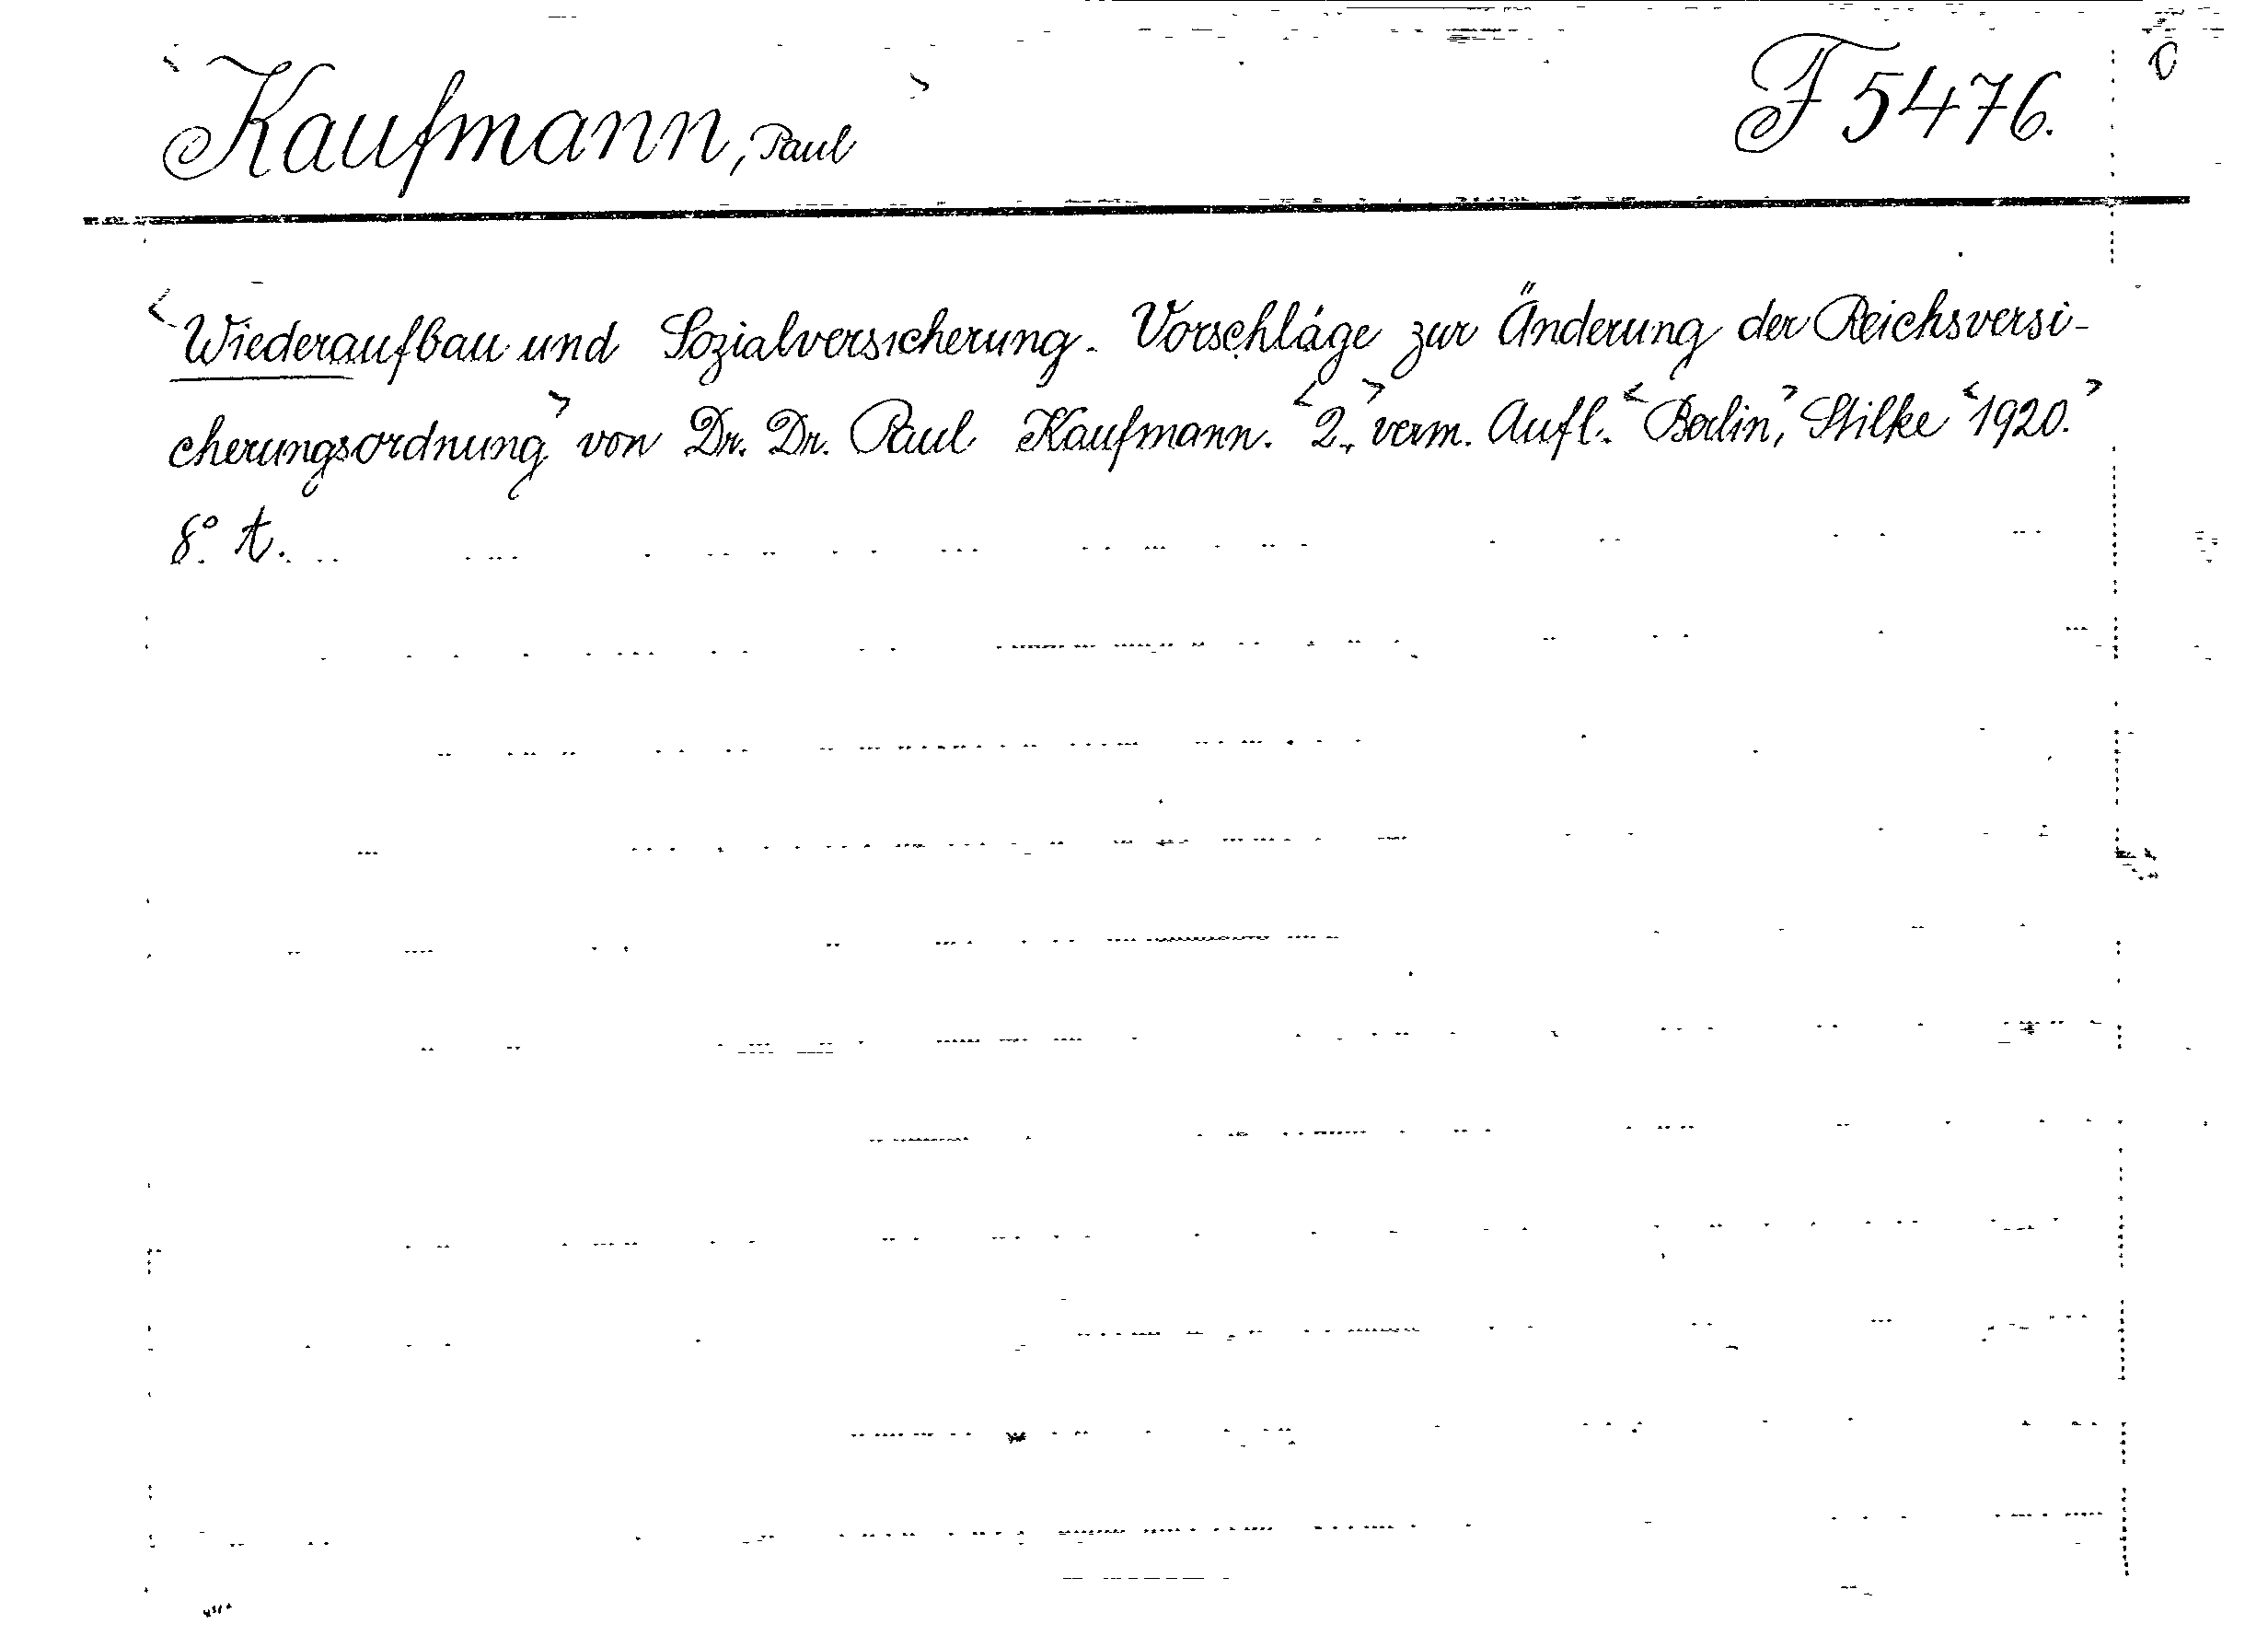 <Kaufmann, Paul> F 5476.
<Wiederaufbau und Sozialversicherung. Vorschläge zur Änderung der Reichsversi-
cherungsordnung> von Dr. Dr. Paul Kaufmann. <2.,> verm. Aufl. <Berlin,> Stilke <1920.>
8°. t.